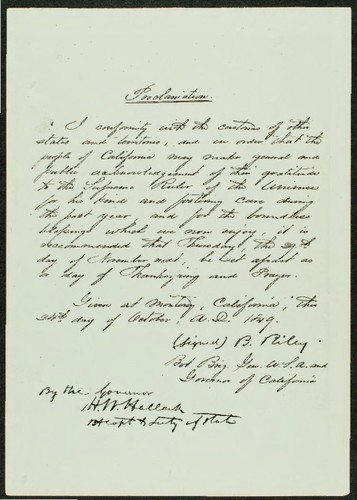 Proclamation.
"I conformity with the customs of other
states and territories, and in order that the
people of California may make general and
public acknowledgement of their gratitude
to the Supreme Ruler of the Universe
for his kind and fostering care during
the past year, and for the boundless
blessings which we now enjoy, it is
recommended that Thursday, the 29th
day of November next, be set apart as
a day of Thanksgiving and Prayer.
Given at Monterey, California, this
24th day of October, A.D. 1849.
(signed) B. Riley.
Bvt. Brig. Gen. U.S.A. and
Governor of California
By the Governor
H. W. Halleck
Bt Capt & Secty of State